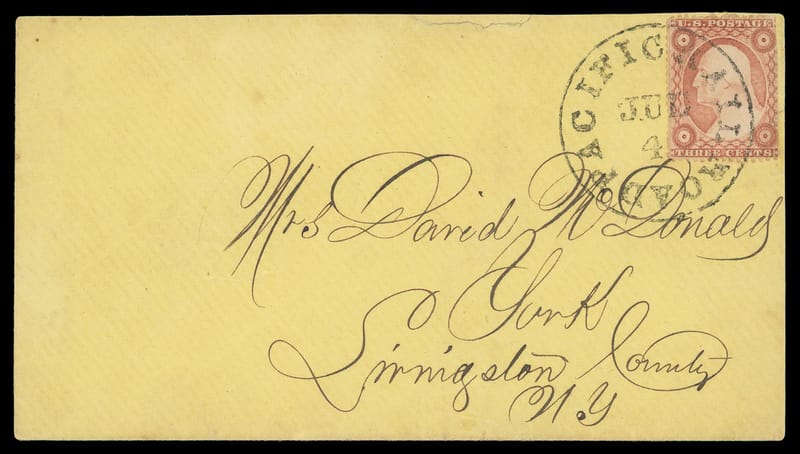 U.S. POSTAGE
THREE CENTS
PACIFIC RAILROAD
JUL
4
Mrs David McDonald
York
Livingston County
N.Y